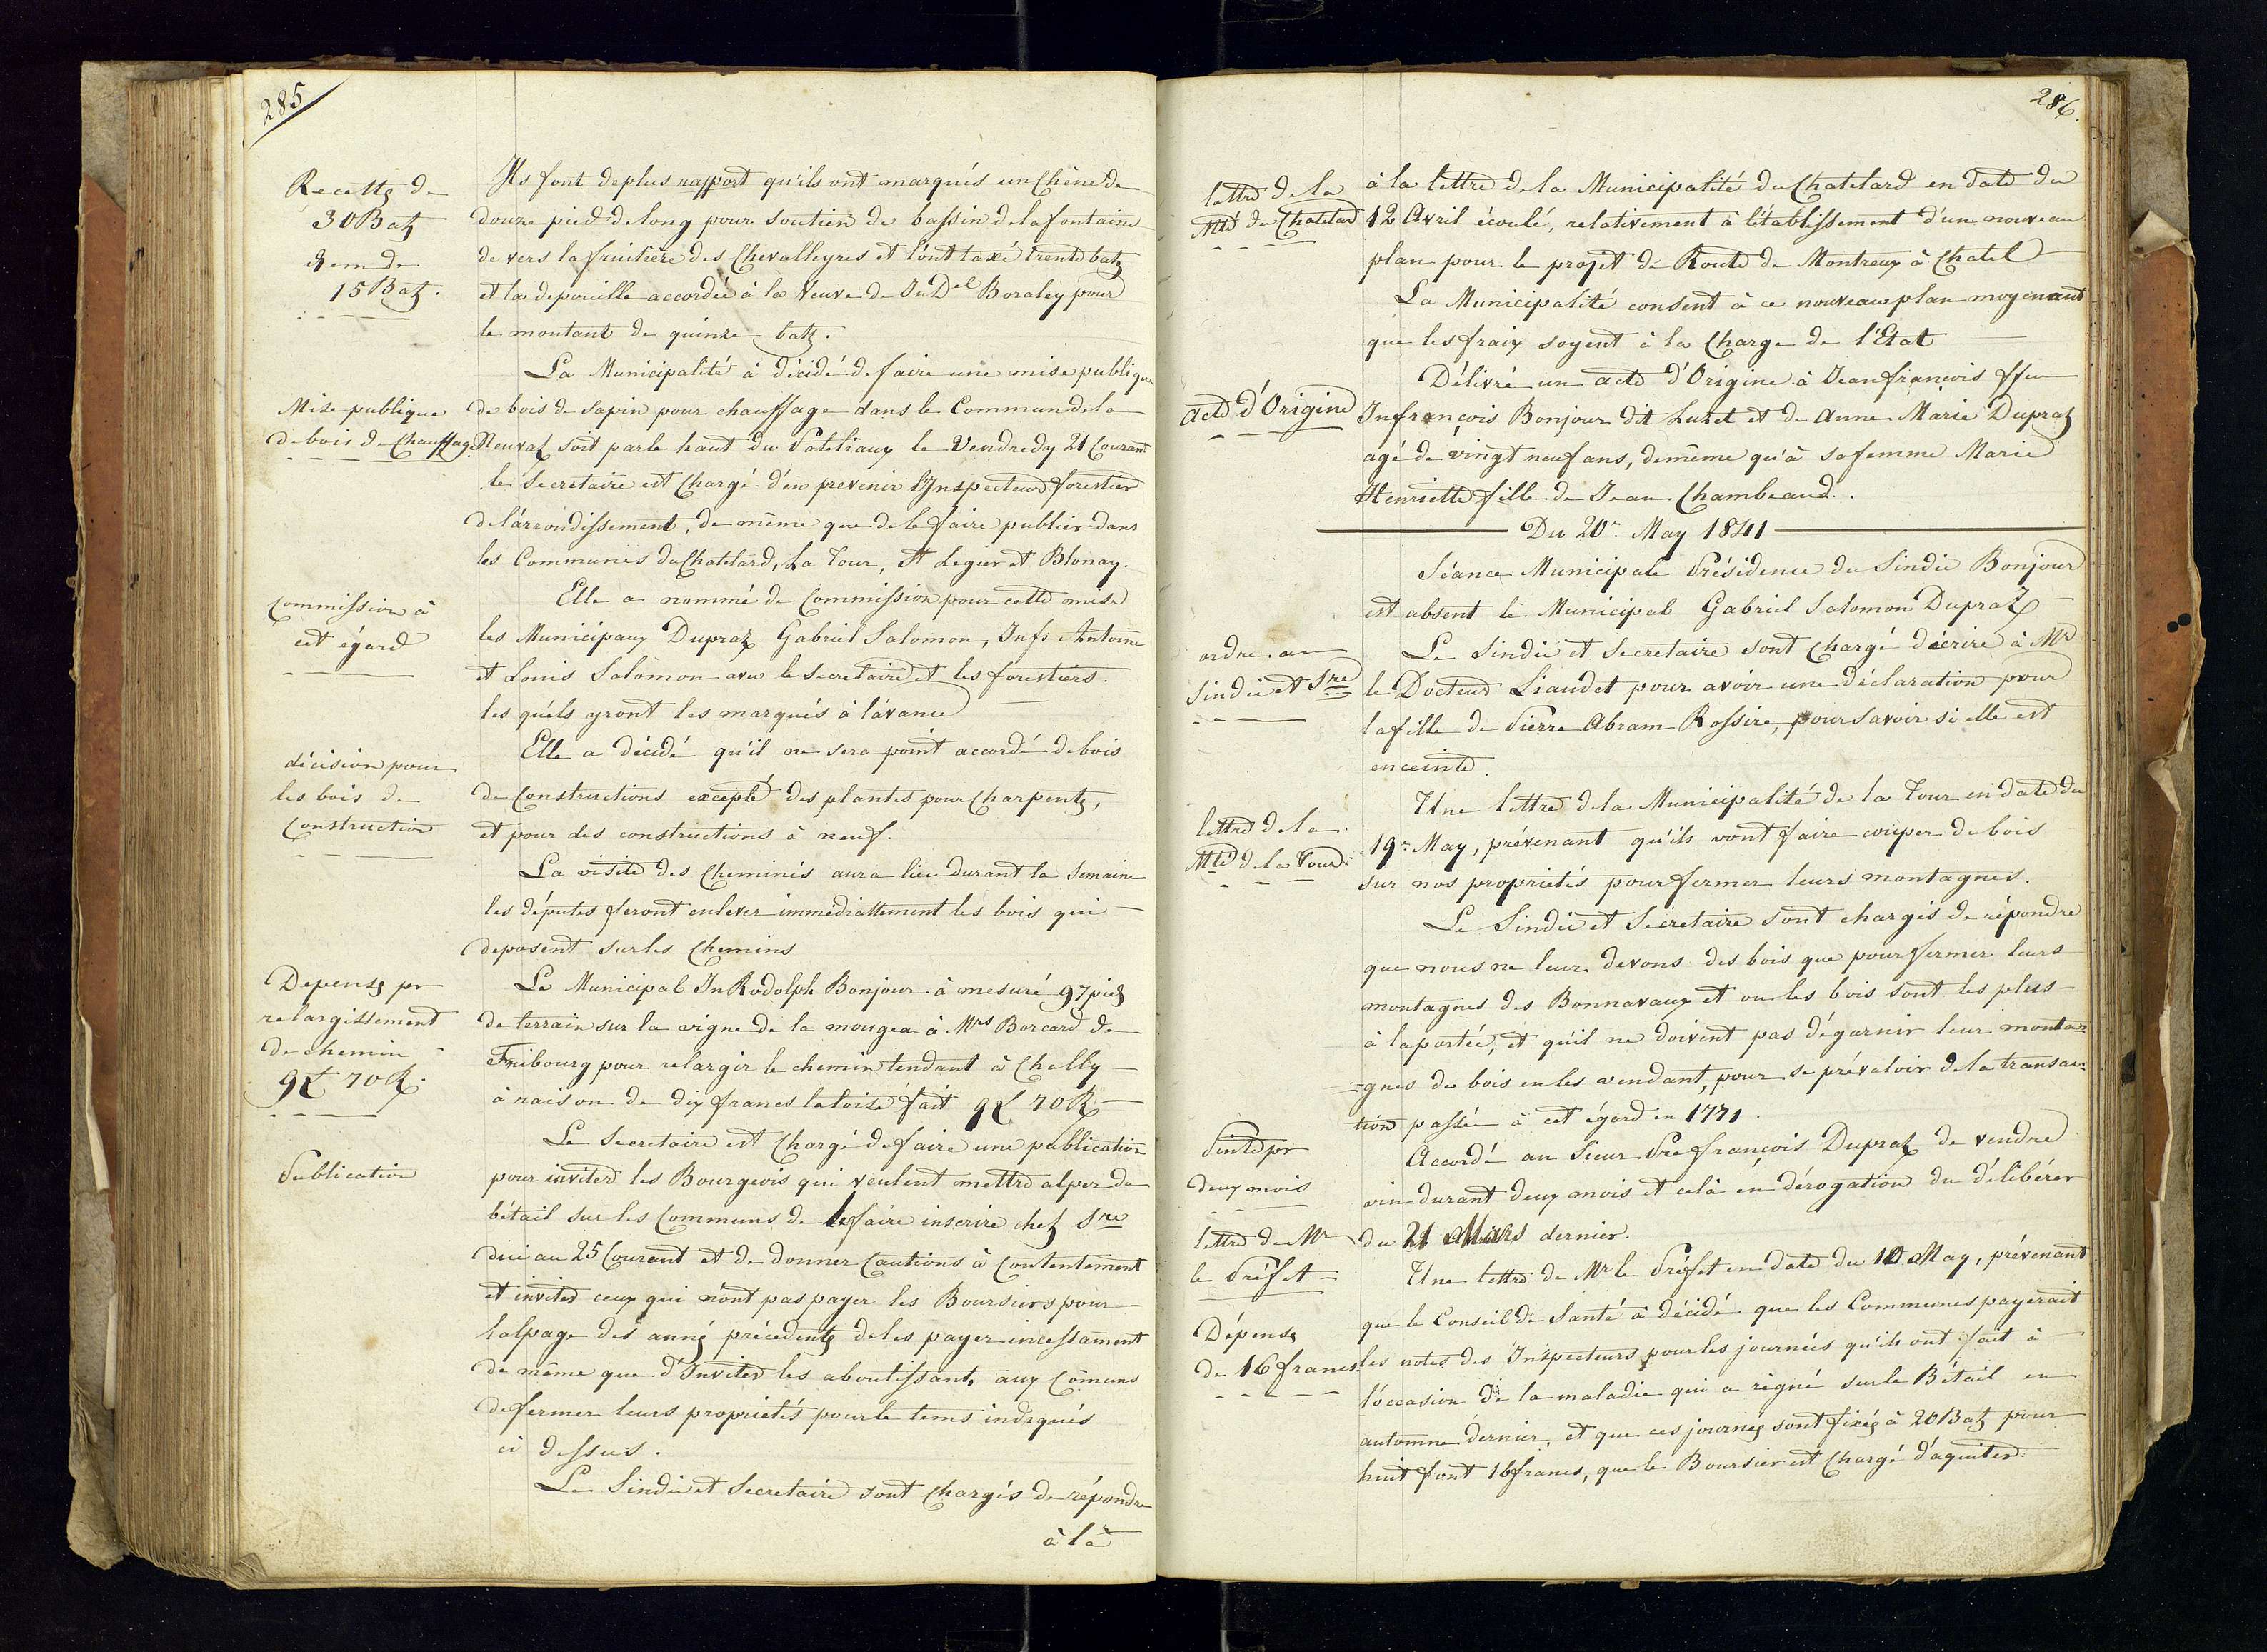 285
Recette de
30 Batz
Idem de
15 Batz.
Ils font deplus rapport qu'ils ont marqués un Chêne de
douze pied de long pour soutien de bassin de la fontaine
de vers la fruitière des Chevalleyres et l'ont taxé trente batz
et la depouille accordée à la Veuve de Jn Del Boraley pour
le montant de quinze batz.
Mise publique
de bois de Chauffage
La Municipalité à décidé de faire une mise publique
de bois de sapin pour chauffage dans le Commun de la
Neuvaz soit par le haut du Patitiaux le Vendredy 21 Courant
le Secretaire est Chargé d'en prevenir l'Inspecteur forestier
de l'arrondissement, de même que de le faire publier dans
les Communes du Chatelard, La Tour, St Legier et Blonay.
Commission à
cet égard
Elle a nommé de Commission pour cette mise
les Municipaux Dupraz Gabriel Salomon, Jnfs Antoine
et Louis Salomon avec le Secretaire et les forestiers.
les quels yront les marqués à l'avance
décision pour
les bois de
Construction
Elle a décidé qu'il ne sera point accordé de bois
de Constructions excepté des plantes pour Charpente,
et pour des constructions à neuf.
La visite des Cheminés aura lieu durant la Semaine
les députés feront enlever immédiattement les bois qui
deposent sur les Chemins
Depense pr
relargissement
de chemin
9£ 70 R.
Le Municipal Jn Rodolph Bonjour à mesuré 97 pied
de terrain sur la vigne de la mougea à Mrs Borcard de
Fribourg pour relargir le chemin tendant à Chelly
à raison de dix francs la toise fait 9£ 70 R
Publication
Le Secretaire est Chargé de faire une publication
pour inviter les Bourgeois qui veulent mettre alper du
bétail sur les Communs de le faire inscrire chez Sre
dici au 25 Courant et de donner Cautions à Contentement
et inviter ceux qui n'ont pas payer les Boursiers pour
l'alpage des année précedente de les payer incessament
de même que d'Inviter les aboutissant, aux Cômuns
de fermer leurs propriétés pour le tems indiqués
ci dessus.
Le Sindic et Secretaire sont Chargés de répondre
à la
286.
lettre de la
Mté du Chatelard
à la lettre de la Municipalité du Chatelard en date du
12 Avril écoulé, relativement à l'établissement d'un nouveau
plan pour le projet de Route de Montreux à Chatel
La Municipalité consent à ce nouveau plan moyenant
que les fraix soyent à la Charge de l'Etat
acte d'Origine
Délivré un acte d'Origine à Jean françois ffeu
Jnfrançois Bonjour dit Luzet et de Anne Marie Dupraz
agé de vingt neuf ans, de même qu'à sa femme Marie
Henriette fille de Jean Chambeaud.
Du 20r. May 1841
Séance Municipale Présidence du Sindic Bonjour
est absent le Municipal Gabriel Salomon Dupraz
ordre au
Sindic et Sre
Le Sindic et Secretaire sont Chargé décrire à Mr
le Docteur Liaudet pour avoir une déclaration pour
la fille de Pierre Abram Rossire, pour savoir si elle est
enceinte.
lettre de la
Mté de la Tour.
Une lettre de la Municipalité de la Tour en date du
19r May, prévenant qu'ils vont faire couper du bois
sur nos propriétés pour fermer leurs montagnes.
Le Sindic et Secretaire sont chargés de répondre
que nous ne leur devons des bois que pour fermer leurs
montagnes des Bonnavaux et ou les bois sont les plus
à la portée, et qu'il ne doivent pas dégarnir leur monta=
=gnes de bois en les vendant, pour se prévaloir de la transac=
tion passée à cet égard en 1771.
Pinte pr
deux mois
Accordé au Sieur Pre françois Dupraz de vendre
vin durant deux mois et celà en dérogation du délibérer
du 21 Mars dernier.
lettre de Mr
le Préfet =
Une lettre de Mr le Préfet en date du 10 May, prévenant
que le Conseil de Santé à décidé que les Communes payerait
Dépense
de 16 francs.
les notes des Inspecteurs pour les journées qu'ils ont fait à
l'occasion de la maladie qui a régné sur le Bétail en
automne dernier, et que ces journée sont fixée à 20 Batz pour
huit font 16 francs, que le Boursier est Chargé d'aquiter.